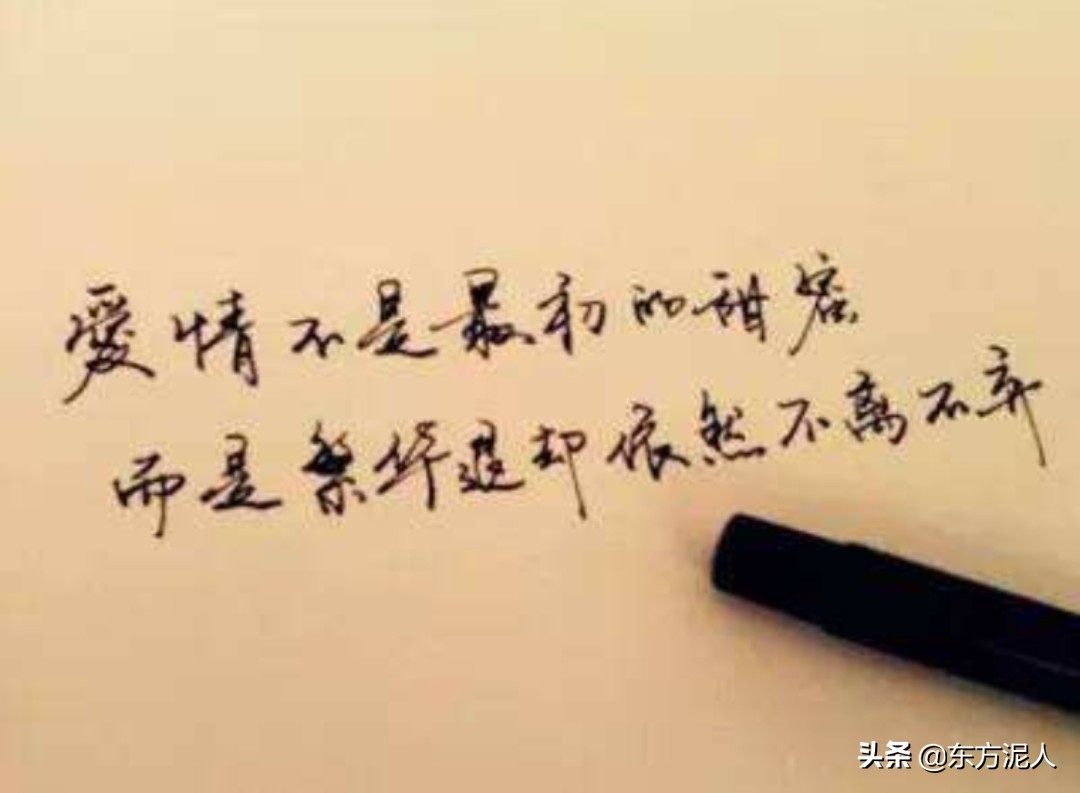 愛情不是最初的甜密
而是繁华退却依然不离不弃
头条 @东方泥人